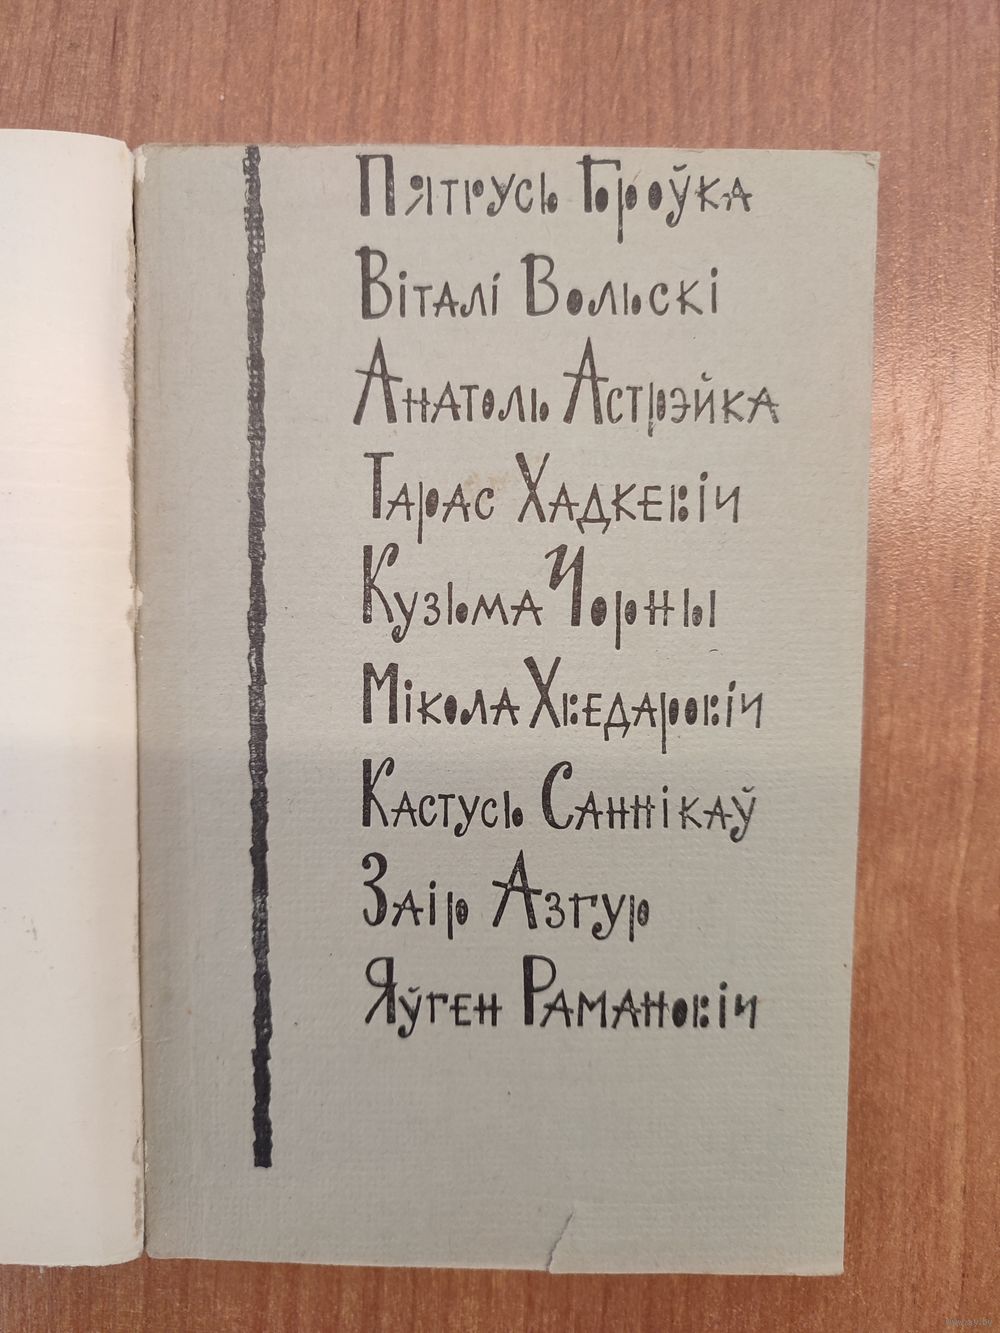 Пятрусь Броўка
Віталі Вольскі
Анатоль Астрэйка
Тарас Хадкевіч
Кузьма Чорны
Мікола Хведаровіч
Кастусь Саннікаў
Заір Азгур
Яўген Рамановіч